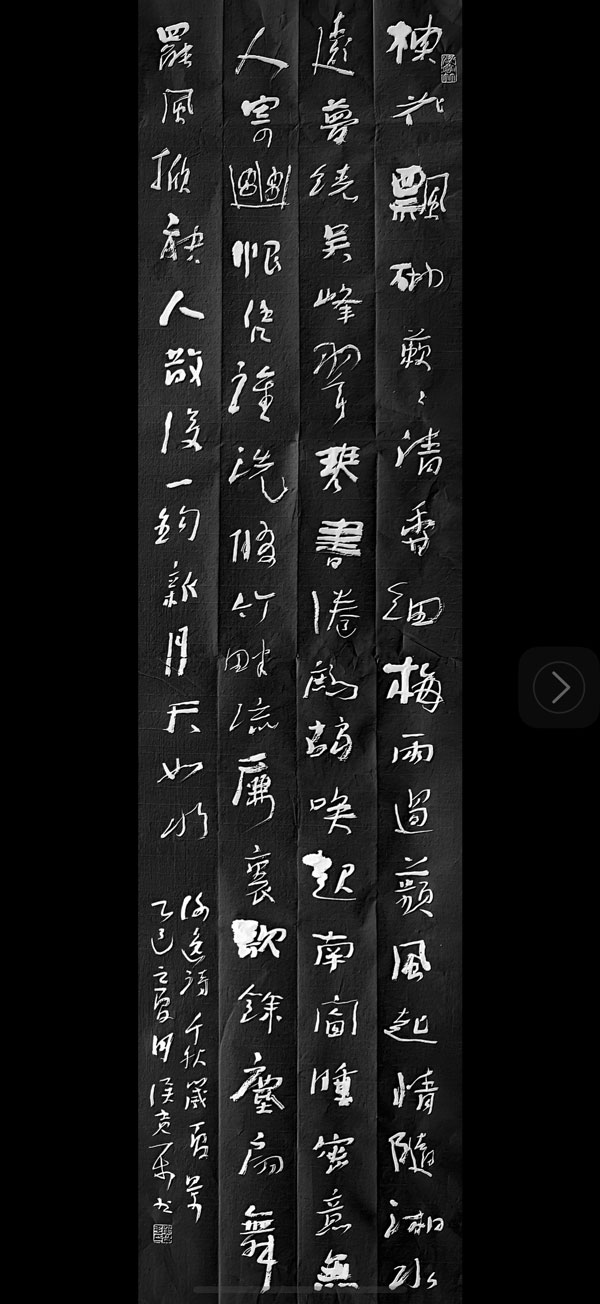 楝花飄砌蔌々清香細梅雨過蘋風起情隨湘水
遠夢繞吳峰翠琴書倦鷓鴣喚起南窗睡密意無
人寄幽恨凭誰洗脩竹畔疏簾裏歌餘塵扇舞
罷風掀袂人散後一鈎新月天如水
謝逸詩千秋歲夏景
乙巳之夏月侯克书